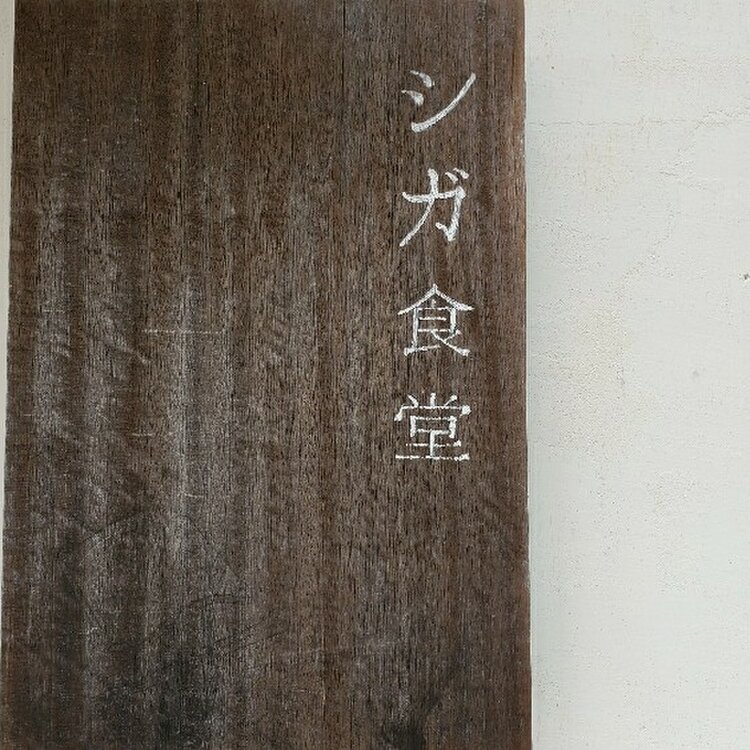 シガ食堂